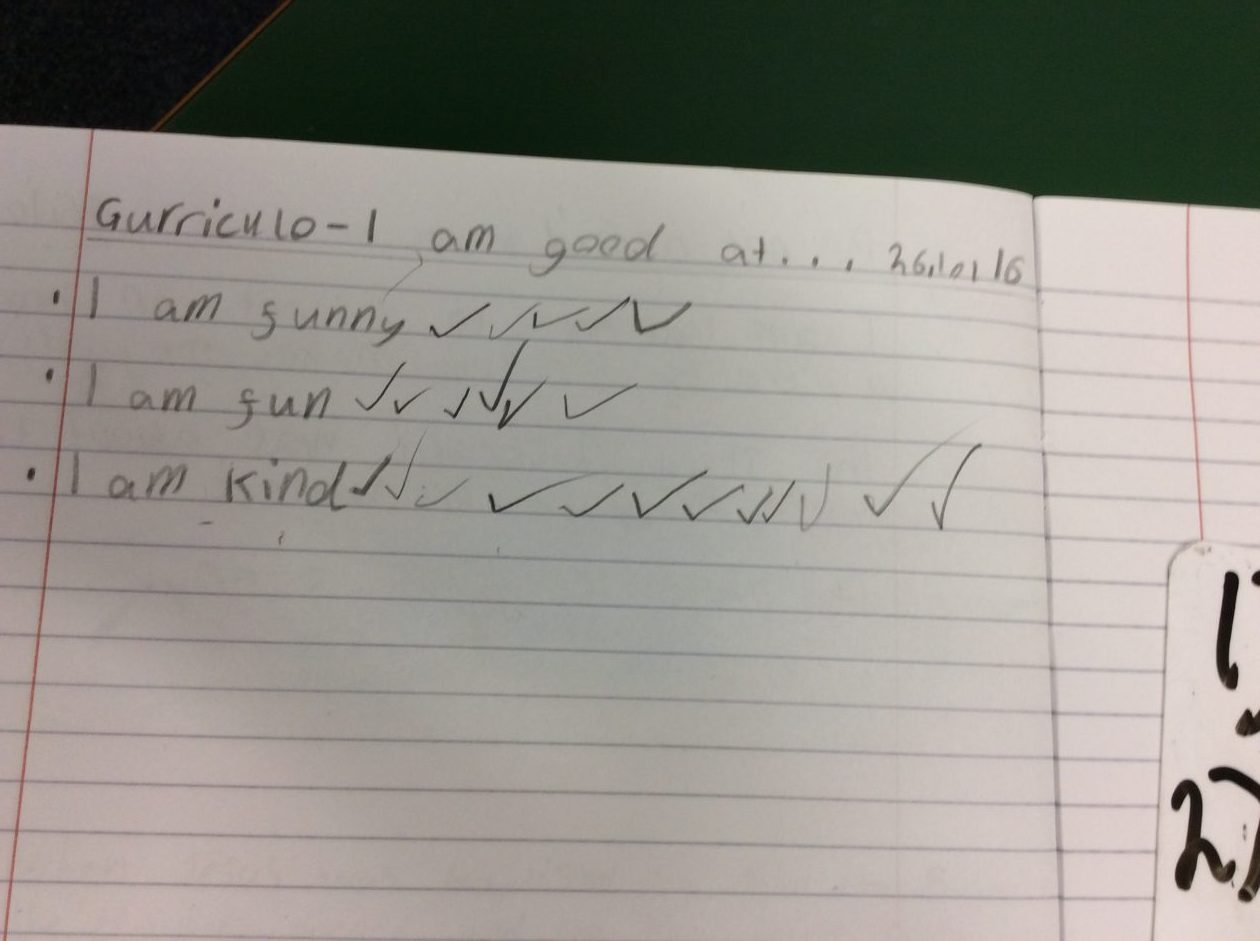 Gurriculo-I am good at... 26.10.16
• I am funny ✓✓✓✓✓
• I am fun ✓✓✓✓✓✓
• I am kind ✓✓✓✓✓✓✓✓✓✓✓✓
1)
2)